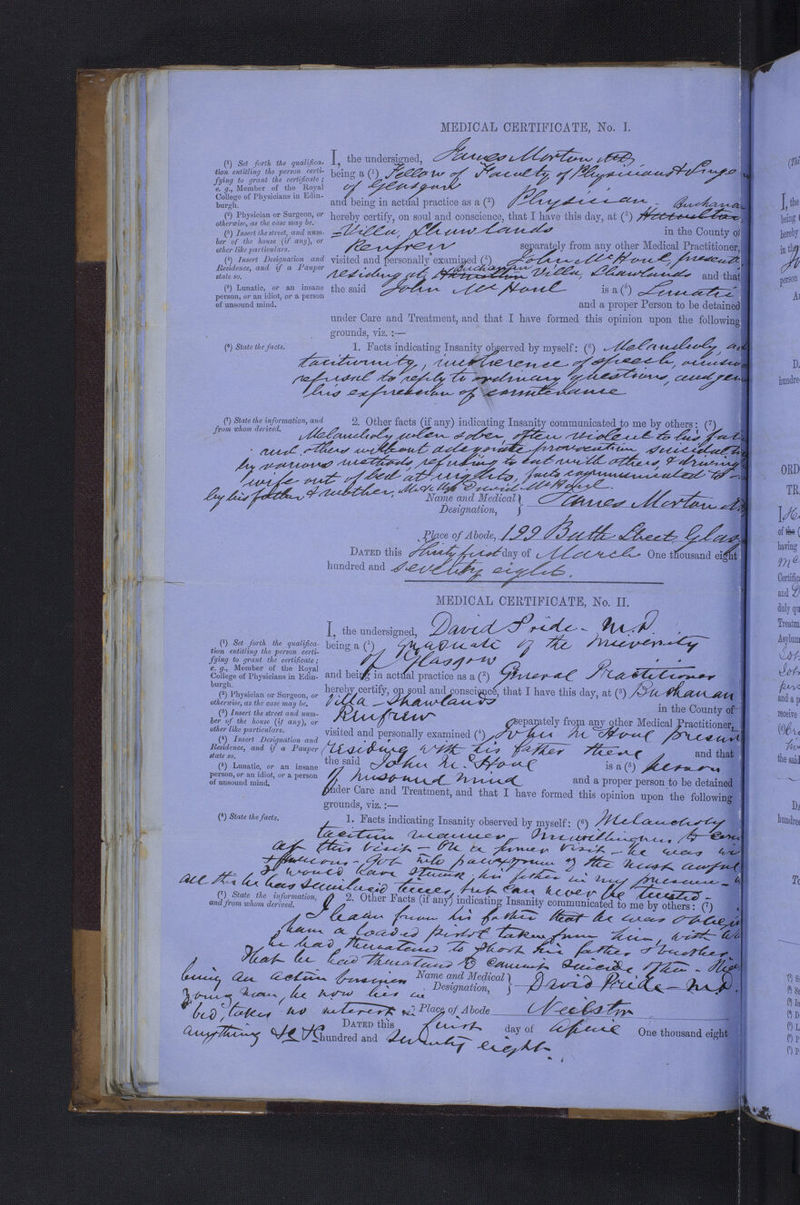 MEDICAL CERTIFICATE, No. I.
(¹) Set forth the qualifica-
tion entitling the person certi-
fying to grant the certificate;
e. g., Member of the Royal
College of Physicians in Edin-
burgh.
(²) Physician or Surgeon, or
otherwise, as the case may be.
(³) Insert the street, and num-
ber of the house (if any), or
other like particulars.
(⁴) Insert Designation and
Residence, and if a Pauper
state so.
(⁵) Lunatic, or an insane
person, or an idiot, or a person
of unsound mind.
I, the undersigned, James Morton MD
being a (¹) Fellow of Faculty of Physicians & Surgeo
of Glasgow
and being in actual practice as a (²) Physician
hereby certify, on soul and conscience, that I have this day, at (³) Buchanan
Villa, Shawlands in the County of
Renfrew separately from any other Medical Practitioner,
visited and personally examined (⁴) John McHoul, present
residing at Buchanan Villa, Shawlands and that
the said John McHoul is a (⁵) Lunatic
and a proper Person to be detained
under Care and Treatment, and that I have formed this opinion upon the following
grounds, viz. :—
(⁶) State the facts.
1. Facts indicating Insanity observed by myself: (⁶) Melancholy, an
taciturnity, incoherence of speech,
refusal to reply to ordinary questions, and gen
his expression of countenance
(⁷) State the information, and
from whom derived.
2. Other facts (if any) indicating Insanity communicated to me by others: (⁷)
Melancholy when sober, often violent to his fat
and others without adequate provocation suicidal
by various methods, refusing to eat with others, & driving
wife out of bed at nights, facts communicated to
by his father & mother, Mr & Mrs David McHoul
Name and Medical
Designation, James Morton
Place of Abode, 199 Bath Street Glas
DATED this Thirty first day of March One thousand eight
hundred and seventy eight.
MEDICAL CERTIFICATE, No. II.
(¹) Set forth the qualifica-
tion entitling the person certi-
fying to grant the certificate;
e. g., Member of the Royal
College of Physicians in Edin-
burgh.
(²) Physician or Surgeon, or
otherwise, as the case may be.
(³) Insert the street and num-
ber of the house (if any), or
other like particulars.
(⁴) Insert Designation and
Residence, and if a Pauper
state so.
(⁵) Lunatic, or an insane
person, or an idiot, or a person
of unsound mind.
I, the undersigned, David Pride - M.D
being a (¹) Graduate of the University
of Glasgow
and being in actual practice as a (²) General Practitioner
hereby certify, on soul and conscience, that I have this day, at (³) Buchanan
Villa - Shawlands in the County of
Renfrew separately from any other Medical Practitioner,
visited and personally examined (⁴) John McHoul present
residing with his father there and that
the said John McHoul is a (⁵) person
of unsound mind and a proper person to be detained
under Care and Treatment, and that I have formed this opinion upon the following
grounds, viz. :—
(⁶) State the facts.
1. Facts indicating Insanity observed by myself: (⁶) Melancholy
taciturn manner, Unwillingness to
at this visit - On a former visit - he was
furious - Got into paroxysm of the most awful
& would have struck his father in my presence -
all this he has seen
(⁷) State the information,
and from whom derived.
2. Other Facts (if any) indicating Insanity communicated to me by others: (⁷)
I learn from his father that he was obliged
have a loaded pistol taken from him, with
he had threatened to shoot his father & mother
That he had threatened to commit suicide often -
being an active business
young man, he now lies in
bed, takes no interest in
anything
Name and Medical
Designation, David Pride - M.D.
Place of Abode Neilston
DATED this first day of April One thousand eight
hundred and seventy eight